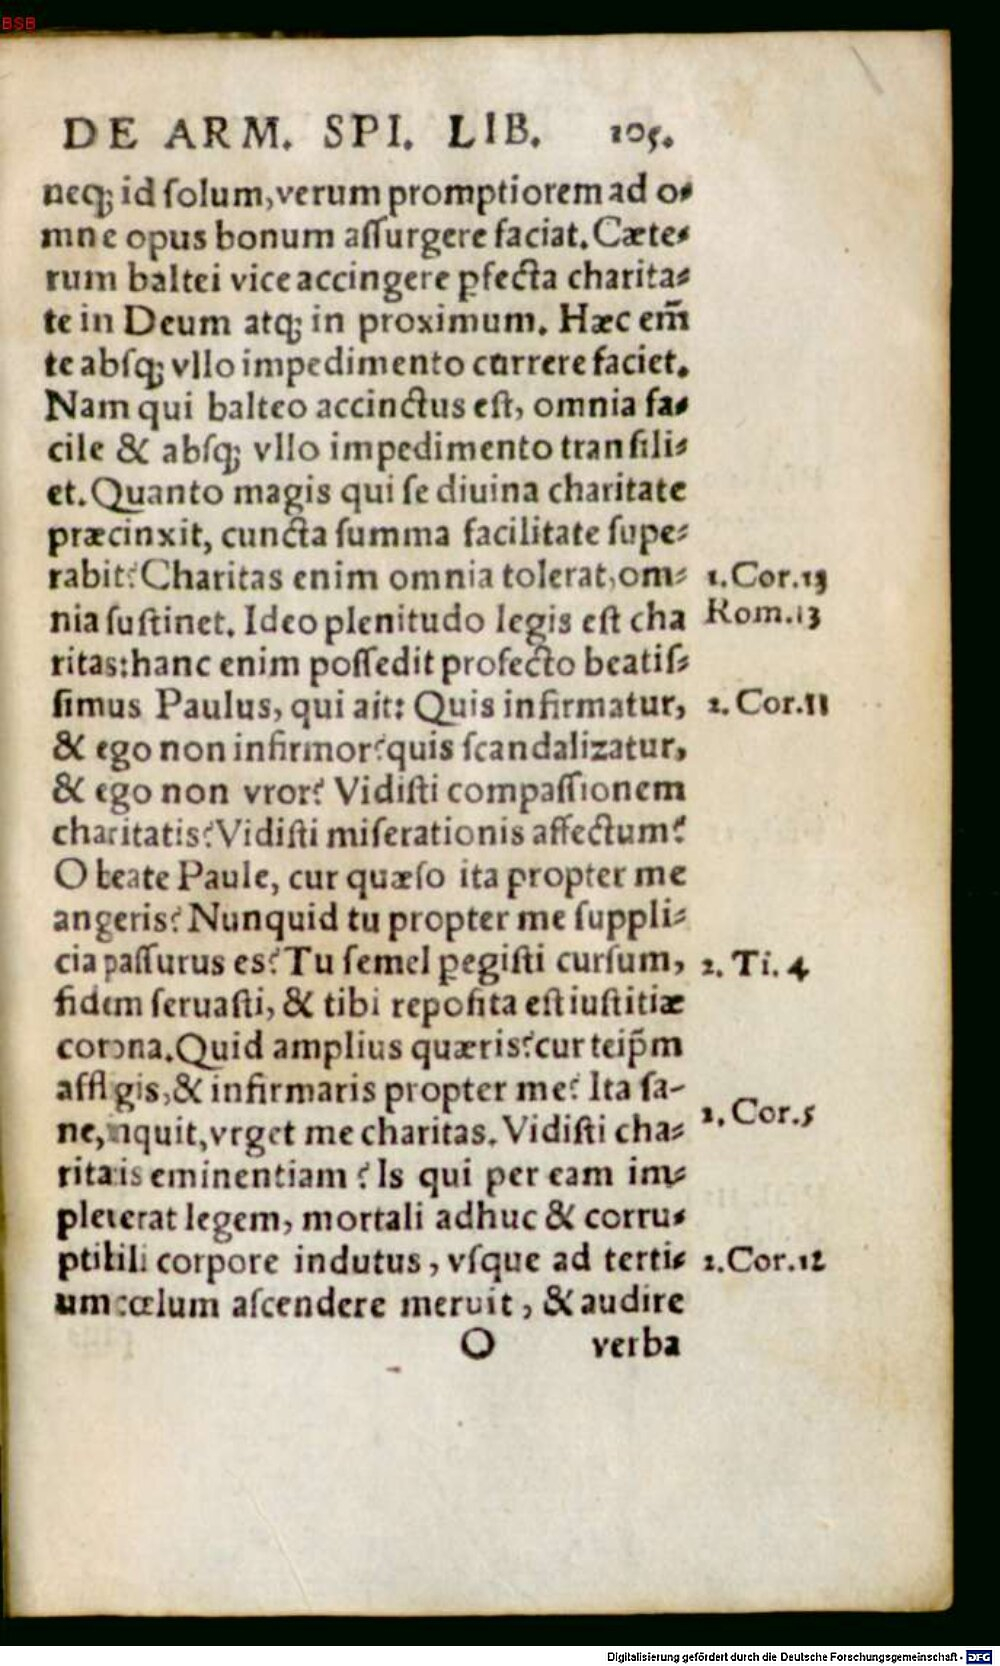 BSB
DE ARM. SPI. LIB. 105.
neq; id ſolum, verum promptiorem ad o⸗
mne opus bonum aſſurgere faciat. Cæte⸗
rum baltei vice accingere ꝑfecta charita⸗
te in Deum atq; in proximum. Hæc em̃
te abſq; vllo impedimento currere faciet.
Nam qui balteo accinctus eſt, omnia fa⸗
cile & abſq; vllo impedimento tranſili⸗
et. Quanto magis qui ſe diuina charitate
præcinxit, cuncta ſumma facilitate ſupe⸗
rabit? Charitas enim omnia tolerat, om⸗ 1. Cor. 13
nia ſuſtinet. Ideo plenitudo legis eſt cha Rom. 13
ritas: hanc enim poſſedit profecto beatiſ⸗
ſimus Paulus, qui ait: Quis infirmatur, 2. Cor. 11
& ego non infirmor? quis ſcandalizatur,
& ego non vror? Vidiſti compaſſionem
charitatis? Vidiſti miſerationis affectum?
O beate Paule, cur quæſo ita propter me
angeris? Nunquid tu propter me ſuppli⸗
cia paſſurus es? Tu ſemel ꝑegiſti curſum, 2. Ti. 4
fidem ſeruaſti, & tibi repoſita eſt iuſtitiæ
corona. Quid amplius quæris? cur teip̃m
affligis, & infirmaris propter me? Ita ſa-
ne, inquit, vrget me charitas. Vidiſti cha⸗ 2. Cor. 5
ritatis eminentiam? Is qui per eam im⸗
pleuerat legem, mortali adhuc & corru⸗
ptibili corpore indutus, vſque ad terti⸗ 2. Cor. 12
um cœlum aſcendere meruit, & audire
O verba
Digitalisierung gefördert durch die Deutsche Forschungsgemeinschaft - DFG